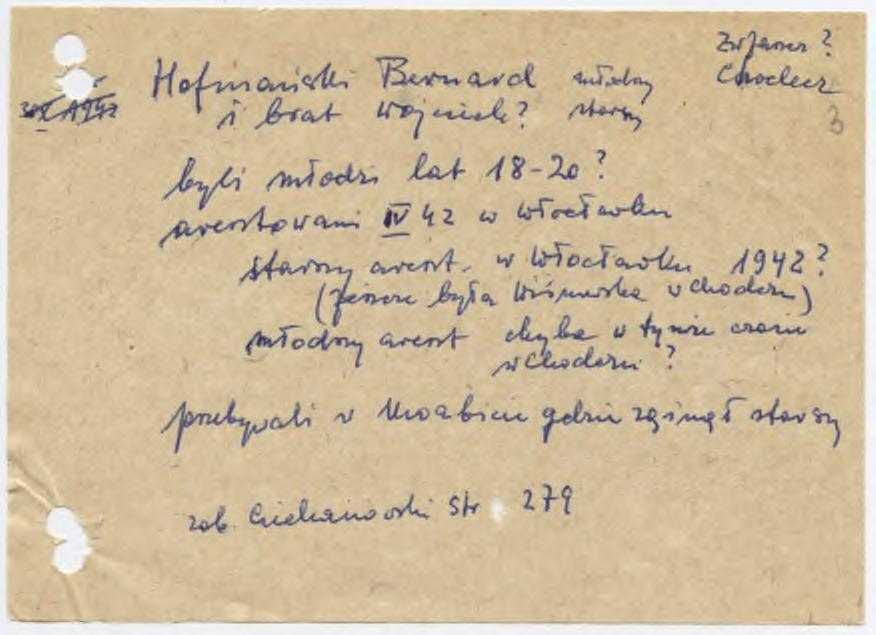 Zwfaner?
Hofmański Bernard młodszy Chodecz
i brat Wojciech? starszy
3
byli młodzi lat 18-20?
aresztowani IV 42 w Włocławku
starszy areszt. w Włocławku 1942?
(jeszcze była Wiśniewska w Chodczu)
młodszy areszt chyba w tymże czasie
w Chodczu?
przebywali w Moabicie gdzie zginął starszy
zob. Ciechanowski str 279